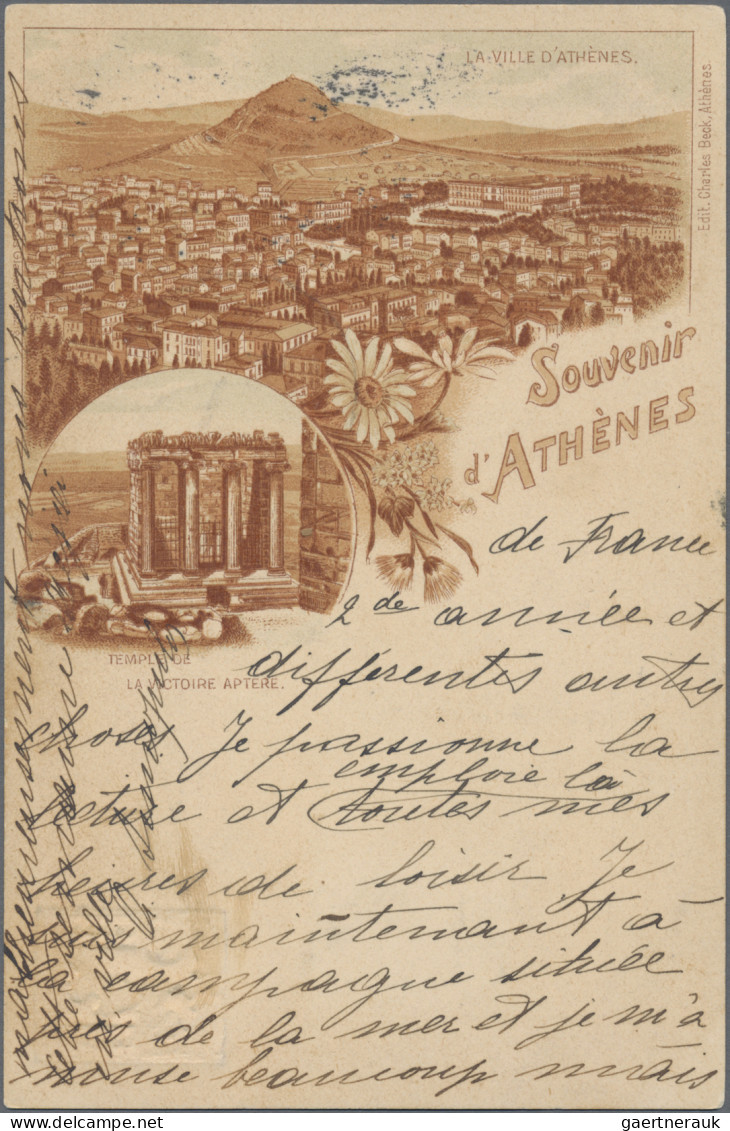 LA VILLE D'ATHÈNES.
Edit. Charles Beck, Athènes
Souvenir
d'ATHÈNES
TEMPLE DE
LA VICTOIRE APTÈRE.
de France
2de année et
différentes autres
choses Je passionne la
lecture et emploie là toutes mes
heures de loisir Je
suis maintenant à
la campagne située
près de la mer et je m'a
muse beaucoup mais
malheureusement nous
cette semaine
en ville
gaertnerauk